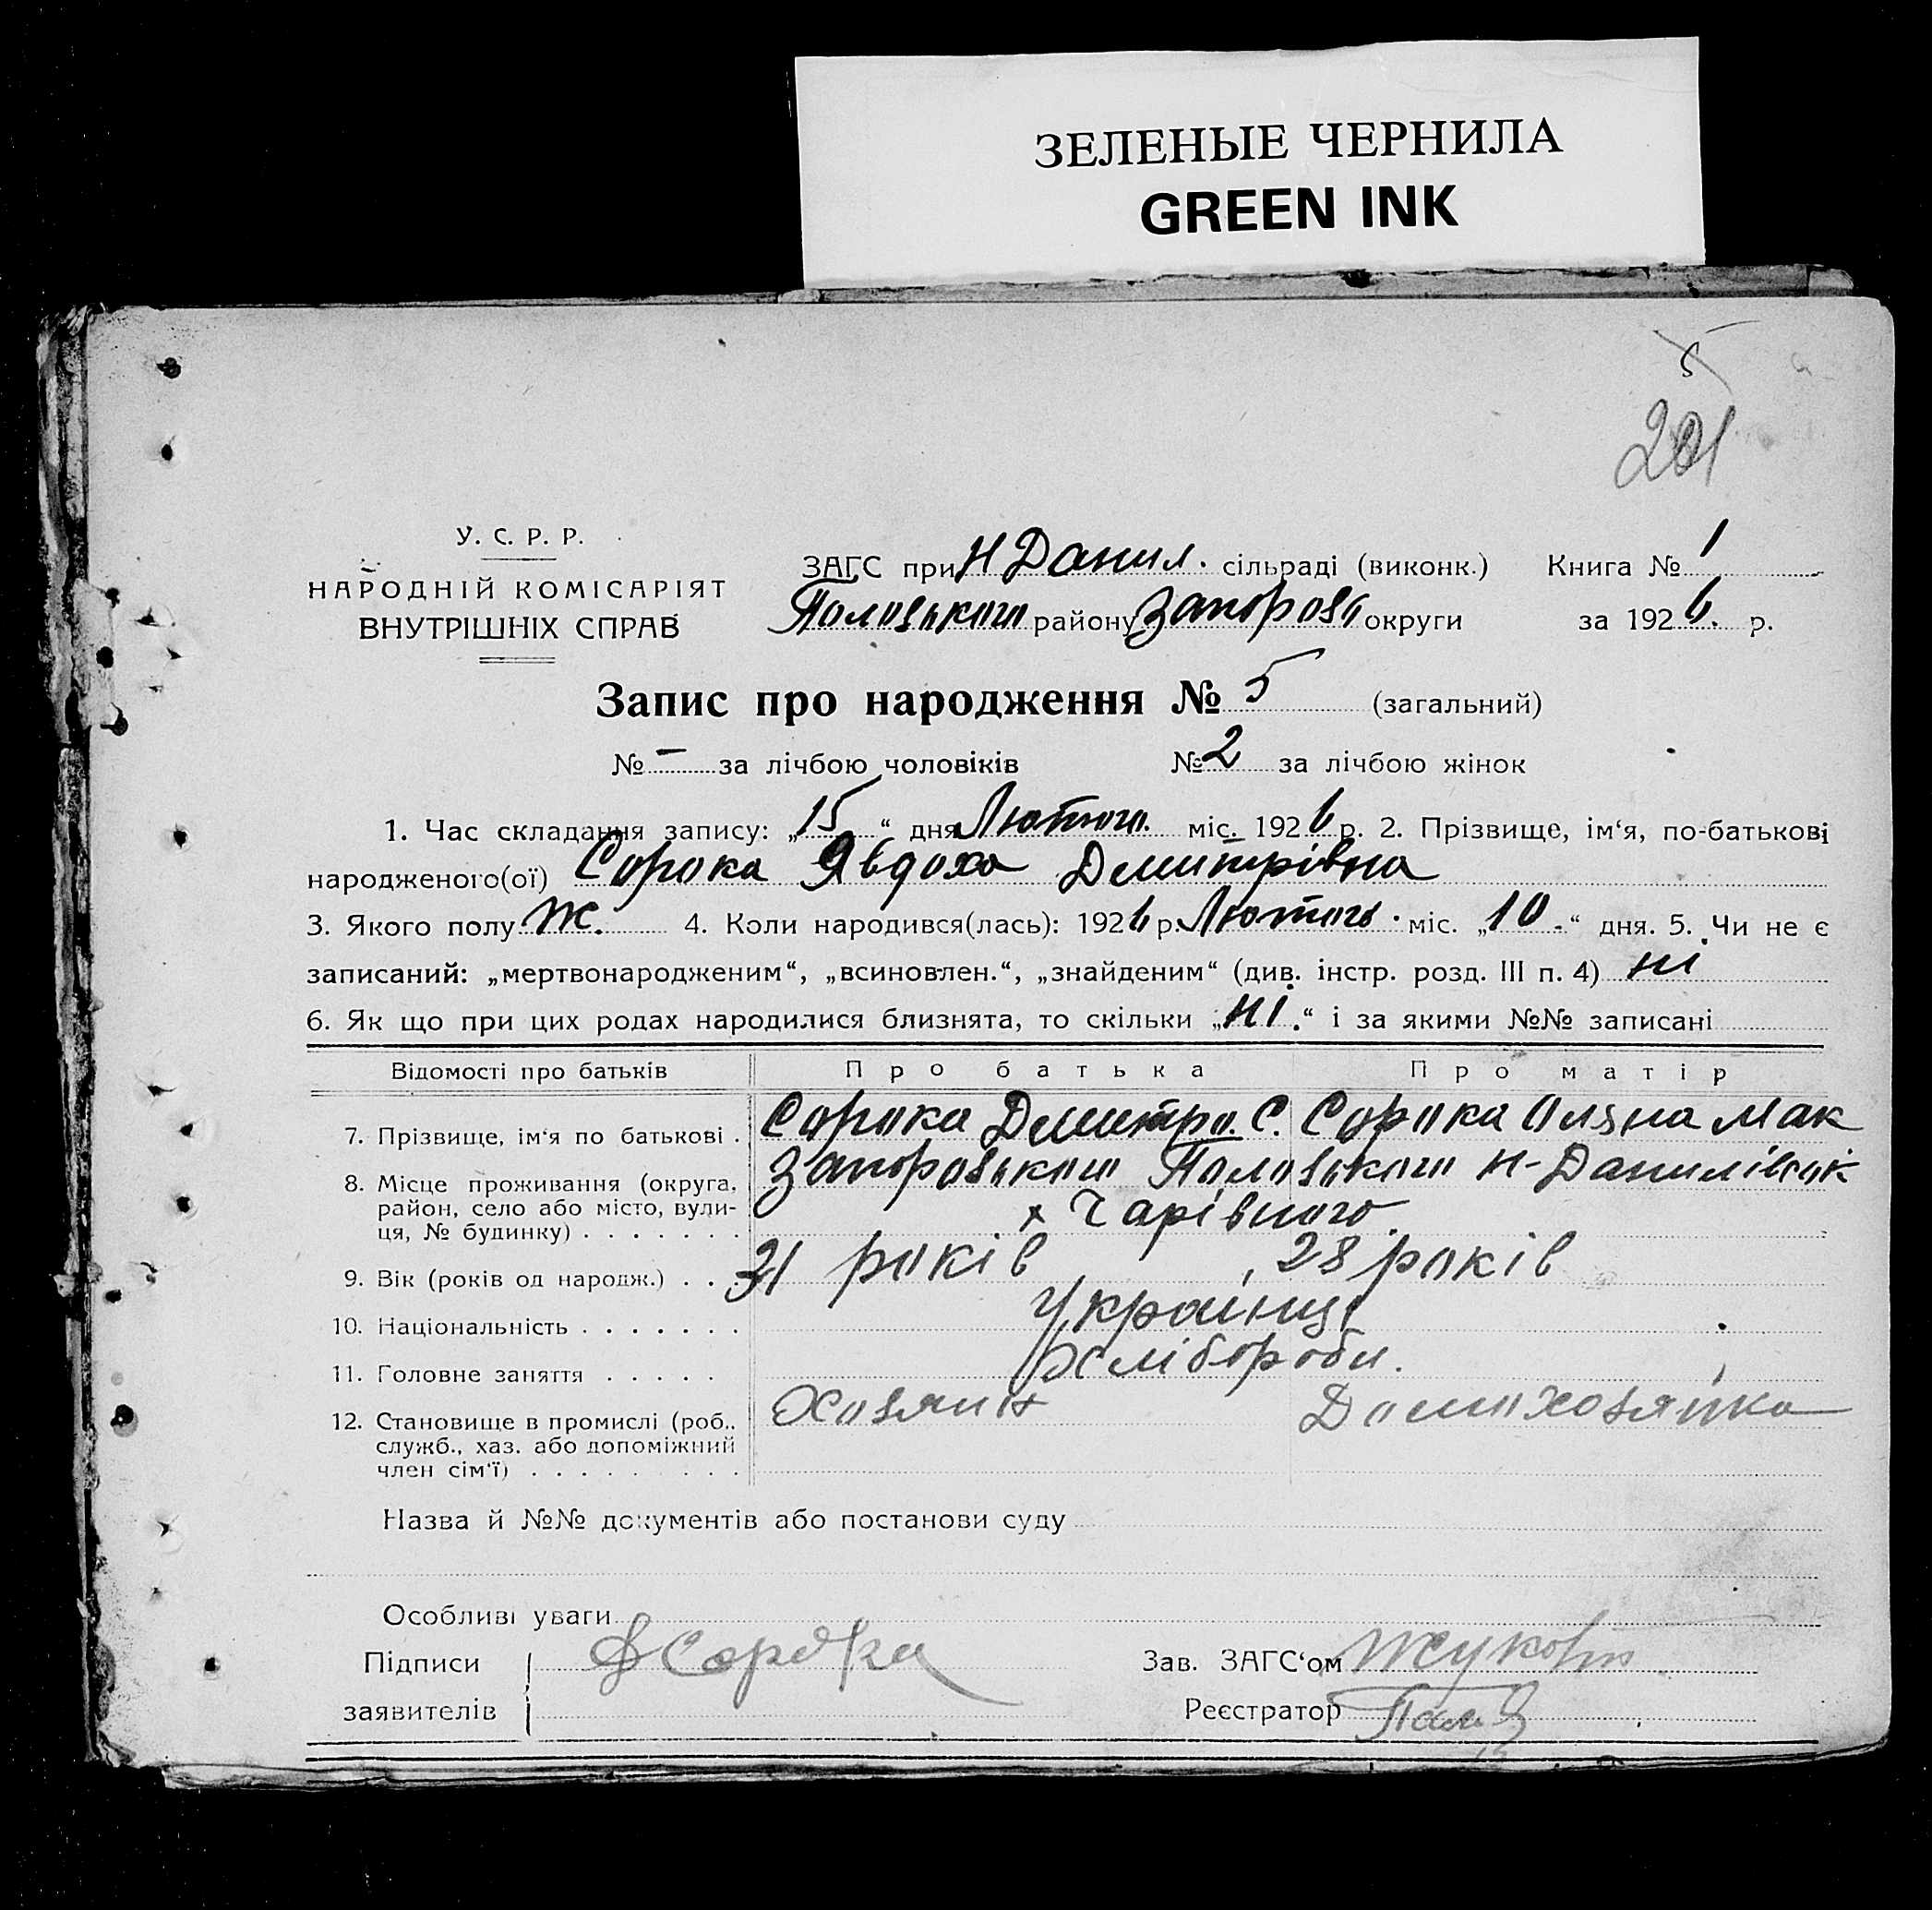 ЗЕЛЕНЫЕ ЧЕРНИЛА
GREEN INK
5
201
У. С. Р. Р.
НАРОДНІЙ КОМІСАРІЯТ
ВНУТРІШНІХ СПРАВ
ЗАГС при Н Данил. сільраді (виконк.) Книга № 1
Пологського району Запорозь округи за 1926. р.
Запис про народження № 5 (загальний)
№ – за лічбою чоловіків № 2 за лічбою жінок
1. Час складання запису: „15“ дня Лютого. міс. 1926 р. 2. Прізвище, ім‘я, по-батькові
народженого(ої) Сорока Явдоха Демитрівна
3. Якого полу Ж. 4. Коли народився(лась): 1926 р. Лютого. міс. „10.“ дня. 5. Чи не є
записаний: „мертвонародженим“, „всиновлен.“, „знайденим“ (див. інстр. розд. III п. 4) ні
6. Як що при цих родах народилися близнята, то скільки „ні.“ і за якими №№ записані
Відомості про батьків Про батька Про матір
7. Прізвище, ім‘я по батькові . Сорока Демитро. С. Сорока Оляна Мак
8. Місце проживання (округа, район, село або місто, вули-ця, № будинку) . . . . . . . Запорозького Пологського Н-Данилівськ
х Чарівного.
9. Вік (років од народж.) . . . 31 років 28 років
10. Національність . . . . . . . Українці
11. Головне заняття . . . . . Хлібороби.
12. Становище в промислі (роб., служб., хаз. або допоміжний член сім‘ї) . . . . . . . . . Хозяин Домохозяйка
Назва й №№ документів або постанови суду
Особливі уваги
Підписи Д Сорока Зав. ЗАГС‘ом
заявителів Реєстратор